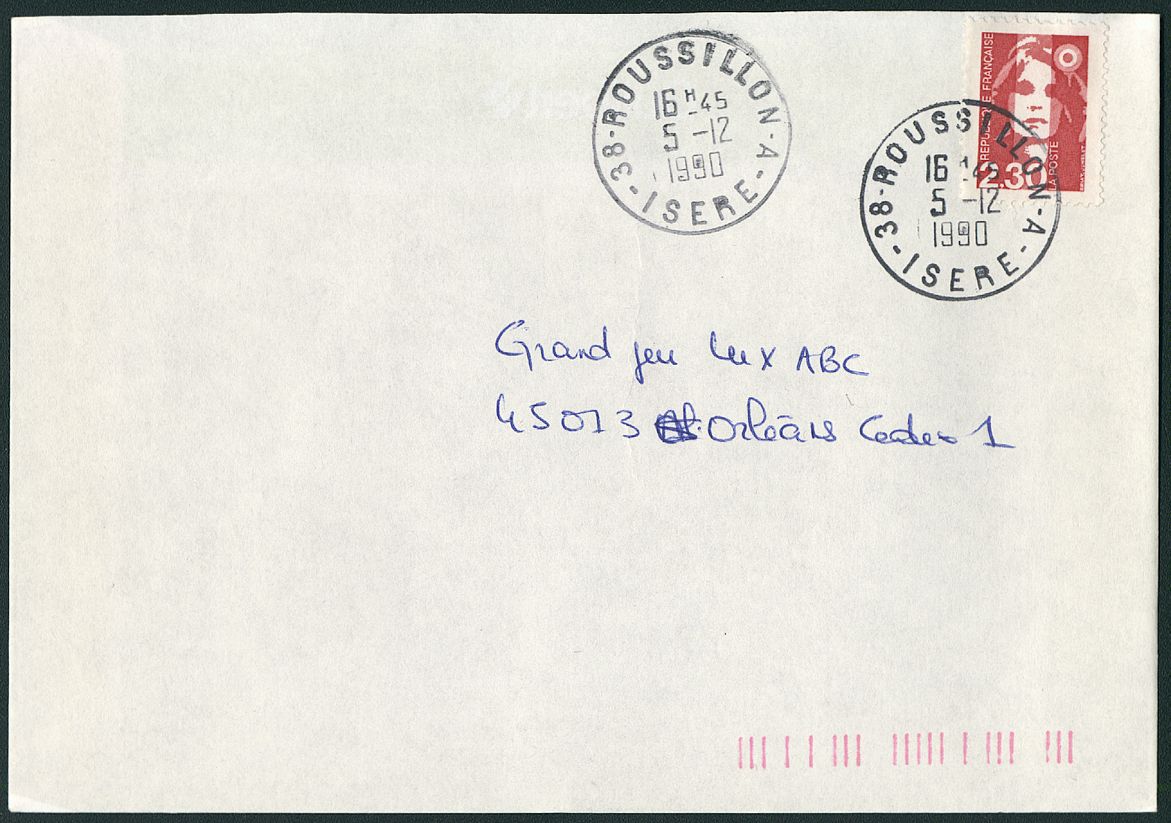 38-ROUSSILLON-A
16H45
5-12
1990
-ISERE-
RÉPUBLIQUE FRANÇAISE
2.30
LA POSTE
38-ROUSSILLON-A
16H45
5-12
1990
-ISERE-
Grand jeu Lux ABC
45073 Orléans Cedex 1